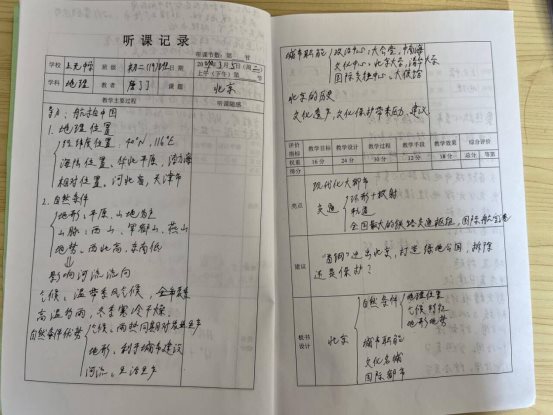 听课记录
听课节数：第 节
学校 上元中学 班级 初二(19)班 日期 20 年3月5日（周二）
上午（下午）第 节
学科 地理 教者 唐丁丁 课题 北京
教学主要过程 听课随感
航拍中国
1. 地理位置
经纬度位置：40°N，116°E
海陆位置：华北平原，渤海
相对位置：河北省，天津市
2. 自然条件
地形：平原、山地为主
山脉：西山、军都山、燕山
地势：西北高，东南低
⇓
影响河流流向
气候：温带季风气候，全年
高温多雨，冬季寒冷干燥
自然条件优势 气候：雨热同期对农业生产
地形：利于城市建设
河流：生活生产
城市职能 政治中心：大会堂，中南海
文化中心：北京大学，清华大学
国际交往中心：大使馆
北京的历史
文化遗产，文化保护带来压力，建议
评价指标 教学目标 教学设计 教学过程 教学手段 教学效果 综合评价
权重 16分 24分 30分 12分 18分 总分 等第
得分
亮点
现代化大都市
交通 环形+放射
轨道
全国最大的铁路交通枢纽，国际航空港
建议
“首钢”迁出北京，打造绿地公园，拆除
还是保护？
板书设计
北京 自然条件 地理位置
气候特征
地形地势
城市职能
文化名城
国际都市